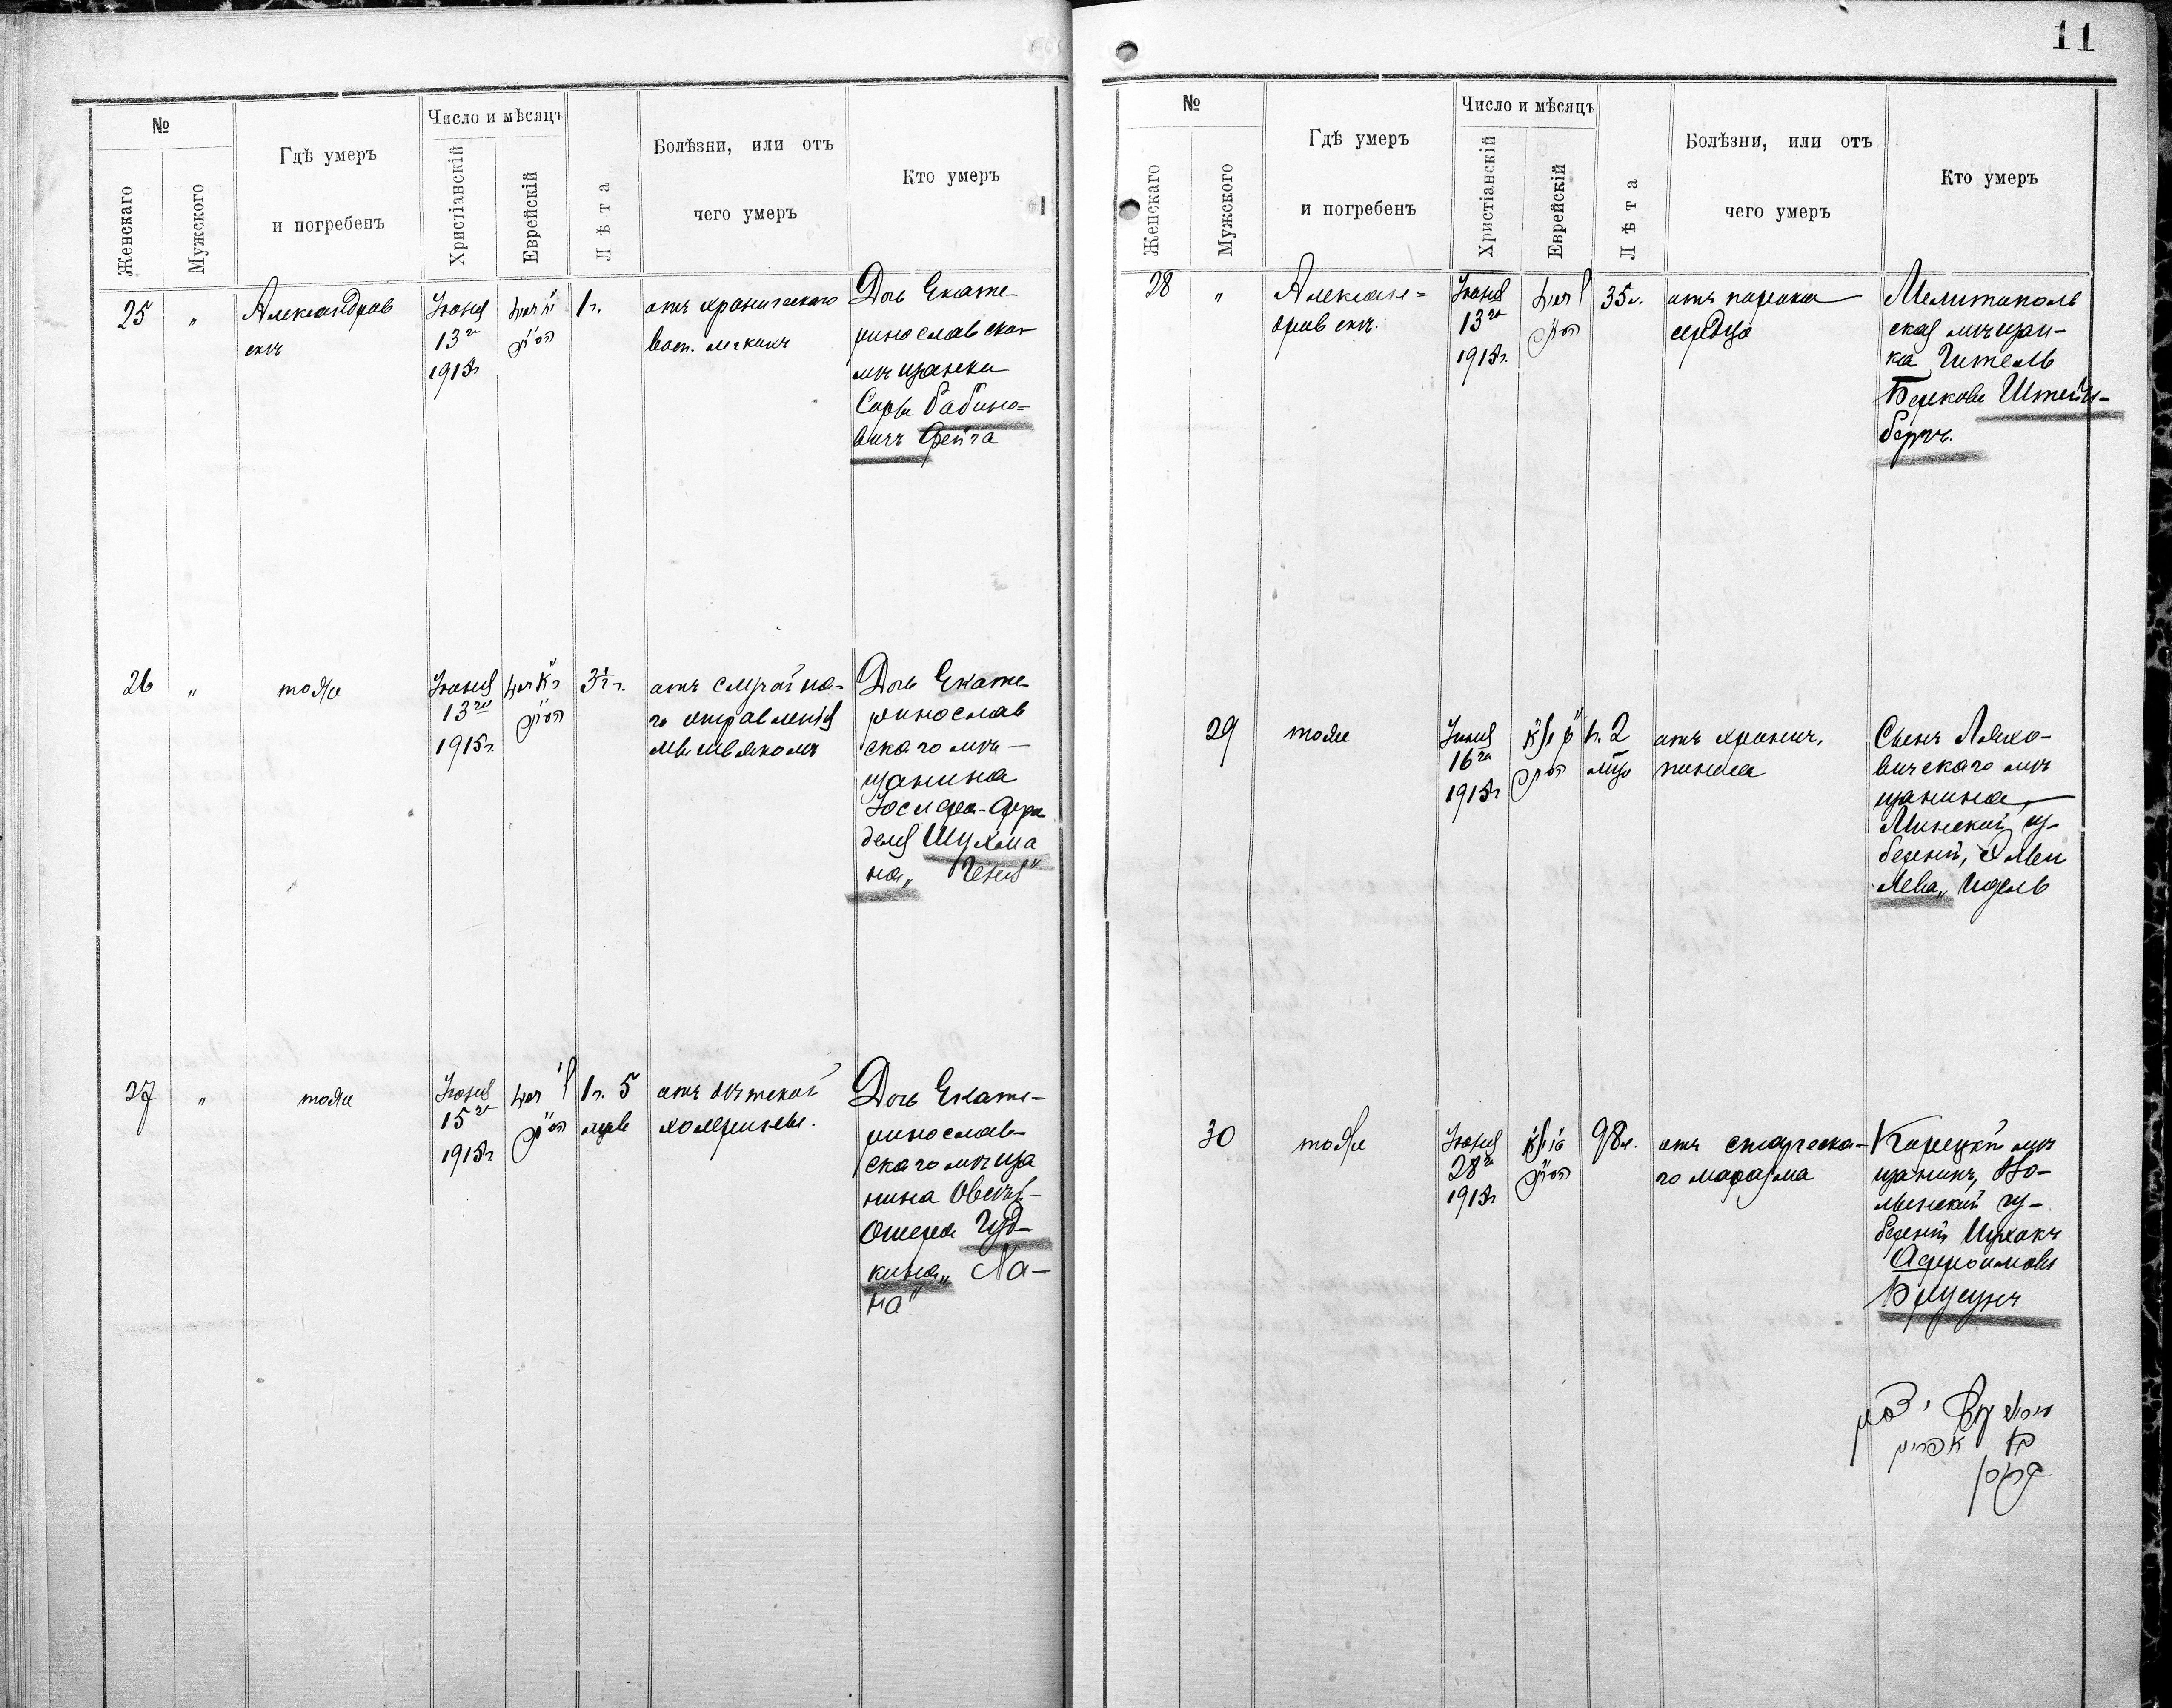 11
№
Женскаго
Мужского
Гдѣ умеръ
и погребенъ
Число и мѣсяцъ
Христіанскій
Еврейскій
Лѣта
Болѣзни, или отъ
чего умеръ
Кто умеръ
25
"
Александров
скъ
Іюня
13го
1915г
1г.
отъ хроническаго
восп. легкихъ
Дочь Екате-
ринославской
мѣщанки
Соры Рабино-
вичъ Фейга
26
"
тоже
Іюня
13го
1915г.
3½ г.
отъ случайна-
го отравленія
мышьякомъ
Дочь Екате-
ринослав
скаго мѣ-
щанина
Іосифа-Фра
деля Шухма
на „Геня"
27
"
тоже
Іюня
15го
1915г
1г. 5
мцев
отъ дѣтской
холерины.
Дочь Екате-
ринослав-
скаго мѣща
нина Овсей-
Ошера Гуд-
кина „Ха-
на"
№
Женскаго
Мужского
Гдѣ умеръ
и погребенъ
Число и мѣсяцъ
Христіанскій
Еврейскій
Лѣта
Болѣзни, или отъ
чего умеръ
Кто умеръ
28
"
Алексан=
дровскъ.
Іюня
13го
1915г.
35л.
отъ порока
сердца
Мелитополь
ская мѣщан-
ка Гитель
Беркова Штейн-
бергъ.
29
тоже
Іюня
16го
1915г
1г. 2
мца
отъ хронич.
Сынъ Ляхо-
вичскаго мѣ
щанина
Минской гу-
берніи,
30
тоже
Іюня
28го
1915г
98л.
отъ старческа-
го маразма
Корецкій мѣ
щанинъ, Во-
лынской гу-
берніи Ицхокъ
Афроимовъ